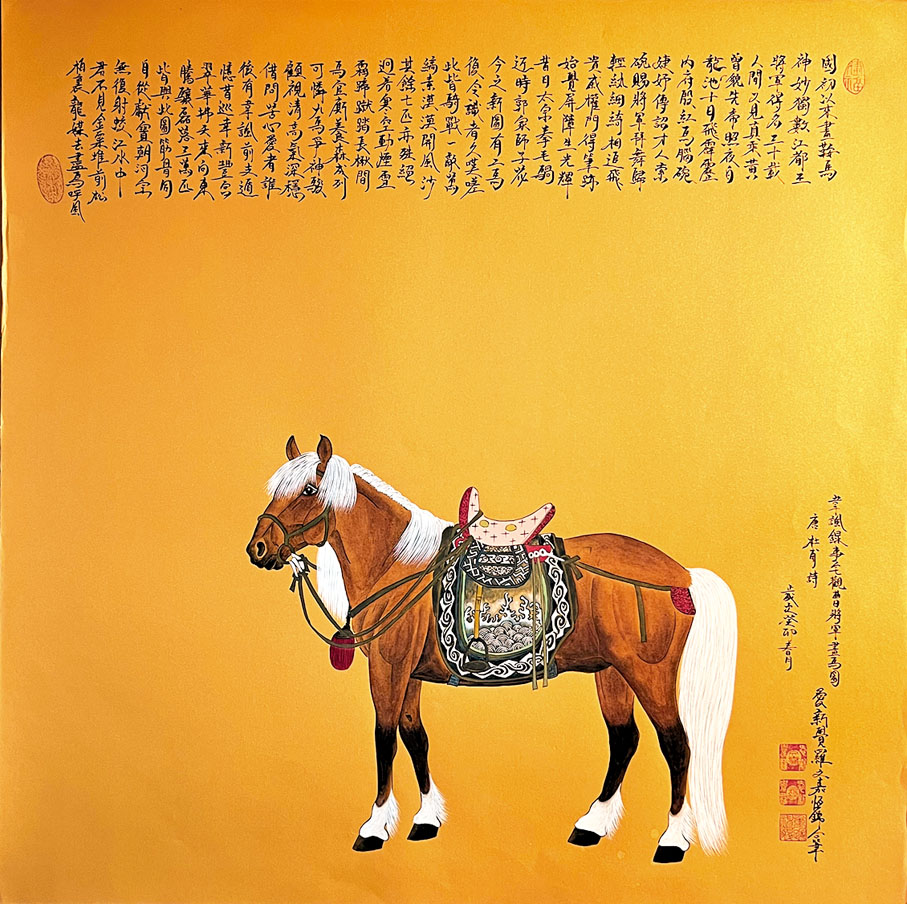 國初以來畫鞍馬
神妙獨數江都王
將軍得名三十載
人間又見真乘黃
曾貌先帝照夜白
龍池十日飛霹靂
內府殷紅馬腦碗
婕妤傳詔才人索
碗賜將軍拜舞歸
輕紈細綺相追飛
貴戚權門得筆跡
始覺屏障生光輝
昔日太宗拳毛騧
近時郭家師子花
今之新圖有二馬
復令識者久嘆嗟
此皆騎戰一敵萬
縞素漠漠開風沙
其餘七匹亦殊絕
迥若寒空動煙雪
霜蹄蹴踏長楸間
馬官廝養森成列
可憐九馬爭神駿
顧視清高氣深穩
借問苦心愛者誰
後有韋諷前支遁
憶昔巡幸新豐宮
翠華拂天來向東
騰驤磊落三萬匹
皆與此圖筋骨同
自從獻寶朝河宗
無復射蛟江水中
君不見金粟堆前松
柏裏龍媒去盡鳥呼風
韋諷錄事宅觀曹將軍畫馬圖
唐杜甫詩
歲次癸卯春月
愛新覺羅文嘉恆合筆